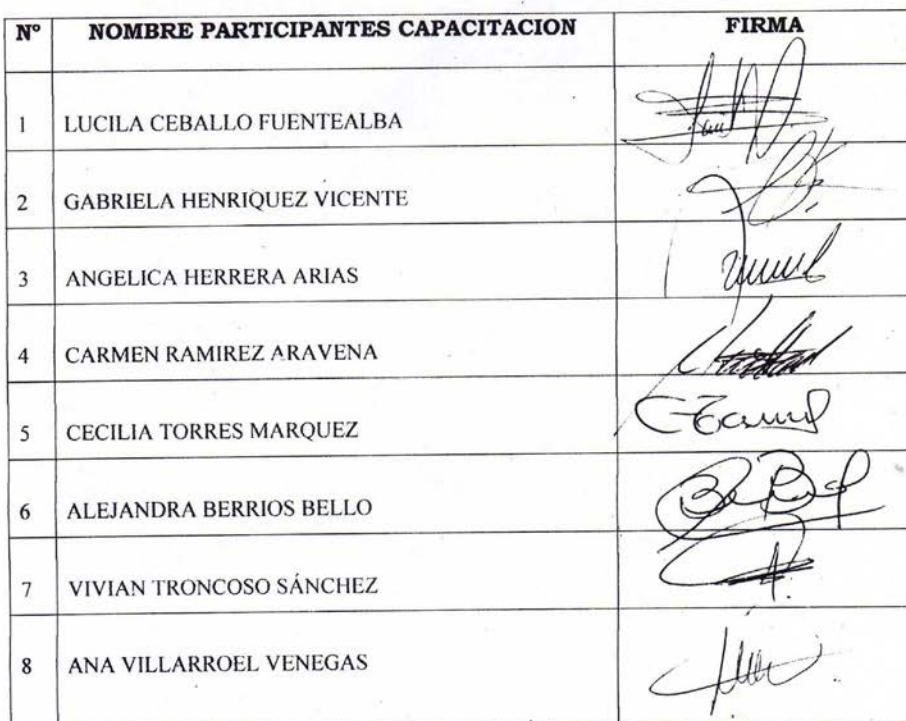 Nº NOMBRE PARTICIPANTES CAPACITACION FIRMA
1 LUCILA CEBALLO FUENTEALBA
2 GABRIELA HENRIQUEZ VICENTE
3 ANGELICA HERRERA ARIAS
4 CARMEN RAMIREZ ARAVENA
5 CECILIA TORRES MARQUEZ
6 ALEJANDRA BERRIOS BELLO
7 VIVIAN TRONCOSO SÁNCHEZ
8 ANA VILLARROEL VENEGAS